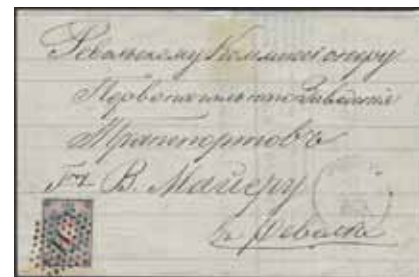 Ревельскому Коммисiонеру
Первоначальнаго Заведенiя
Транспортовъ
Гн В. Майеру
въ Ревелѣ